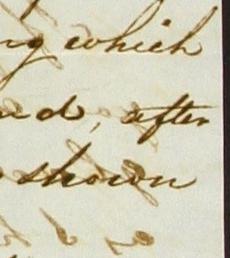 ng which
nd, after
shown